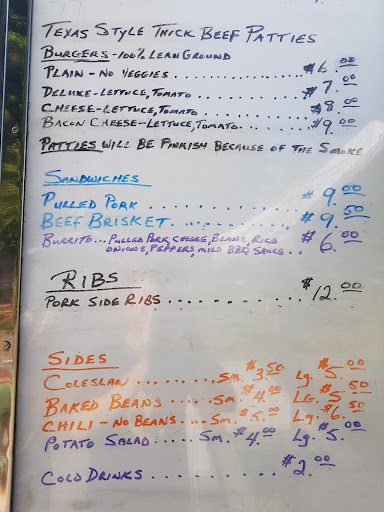 TEXAS STYLE THICK BEEF PATTIES
BURGERS - 100% LEAN GROUND
PLAIN - NO VEGGIES .............. $6.00
DELUXE - LETTUCE, TOMATO ........... $7.00
CHEESE - LETTUCE, TOMATO ........... $8.00
BACON CHEESE - LETTUCE, TOMATO... $9.00
PATTIES WILL BE PINKISH BECAUSE OF THE SMOKE
SANDWICHES
PULLED PORK .............. $9.00
BEEF BRISKET .............. $9.50
BURRITO... PULLED PORK, CHEESE, BEANS, RICE
ONIONS, PEPPERS, MILD BBQ SAUCE.. $6.00
RIBS
PORK SIDE RIBS ............ $12.00
SIDES
COLESLAW ........ Sm. $3.50 Lg. $5.00
BAKED BEANS .... Sm. $4.00 LG. $5.50
CHILI - NO BEANS.... Sm. $5.00 Lg. $6.50
POTATO SALAD.... Sm. $4.00 Lg. $5.00
COLD DRINKS ............ $2.00